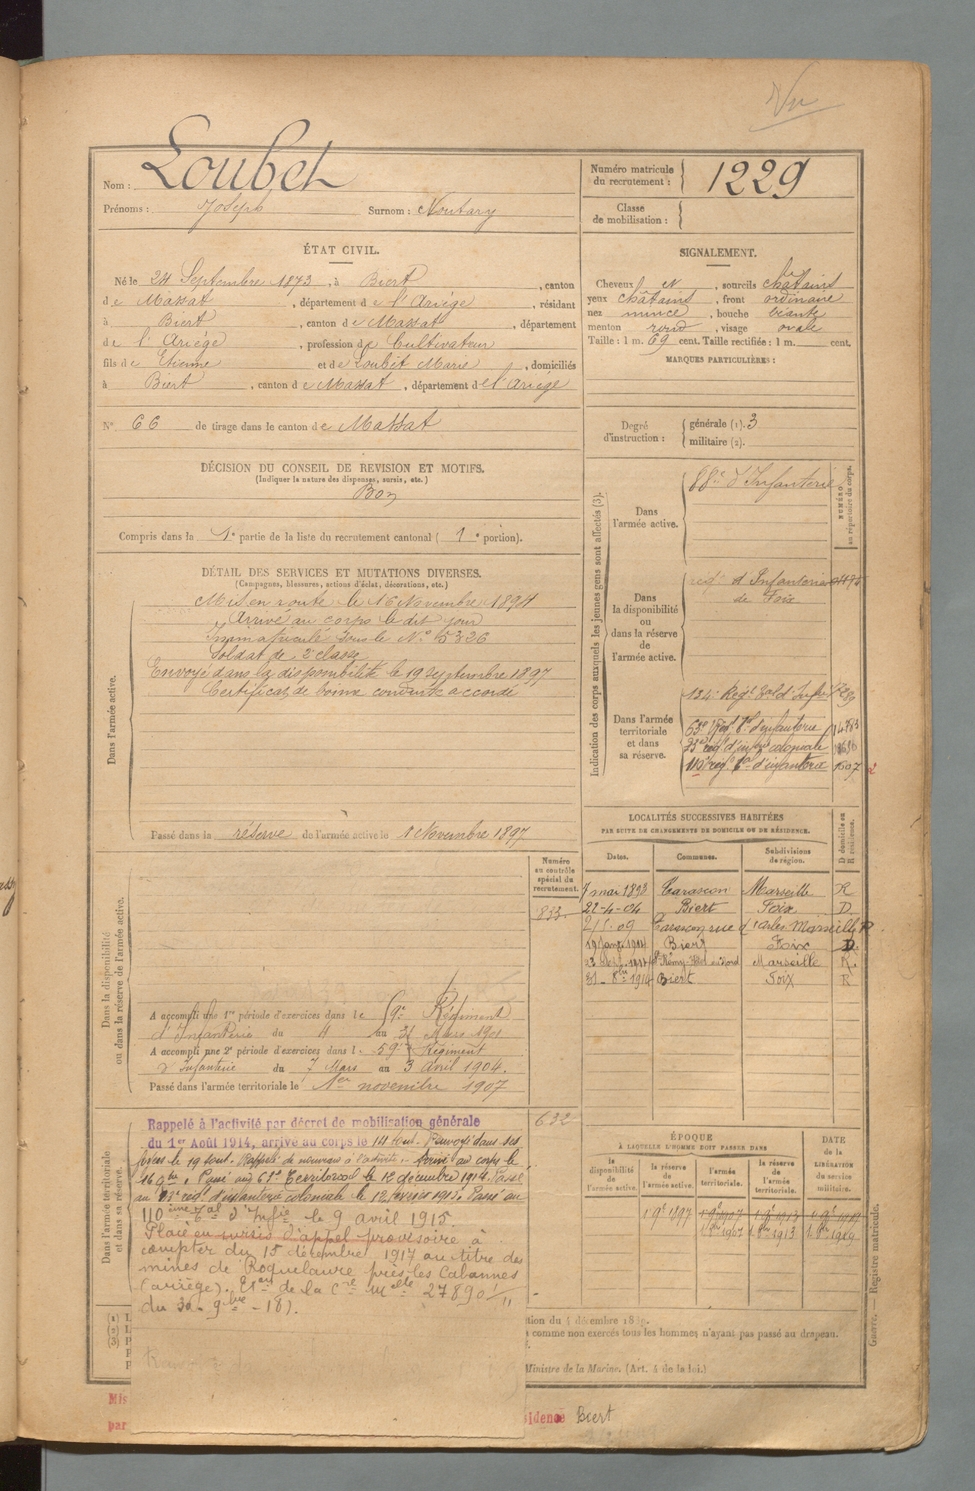 Nu
Nom : Loubet
Prénoms : Joseph Surnom : Noutary
Numéro matricule du recrutement : 1229
Classe de mobilisation :
ÉTAT CIVIL.
Né le 24 Septembre 1873, à Biert, canton
de Massat, département de l'Ariège, résidant
à Biert, canton de Massat, département
de l'Ariège, profession de Cultivateur
fils de Etienne et de Loubet Marie, domiciliés
à Biert, canton de Massat, département de l'Ariège
SIGNALEMENT.
Cheveux et, sourcils châtains
yeux châtains, front ordinaire
nez mince, bouche béante
menton rond, visage ovale
Taille : 1 m. 69 cent. Taille rectifiée : 1 m. cent.
MARQUES PARTICULIÈRES :
N° 66 de tirage dans le canton de Massat
Degré d'instruction : générale (1). 3
militaire (2).
DÉCISION DU CONSEIL DE REVISION ET MOTIFS.
(Indiquer la nature des dispenses, sursis, etc.)
Bon
Compris dans la 1e partie de la liste du recrutement cantonal (1e portion).
DÉTAIL DES SERVICES ET MUTATIONS DIVERSES.
(Campagnes, blessures, actions d'éclat, décorations, etc.)
Dans l'armée active.
Mis en route le 16 Novembre 1894
Arrivé au corps le dit jour
Immatriculé sous le N° 5326
Soldat de 2e classe
Envoyé dans la disponibilité le 19 septembre 1897
Certificat de bonne conduite accordé
Passé dans la réserve de l'armée active le 1 Novembre 1897
Indication des corps auxquels les jeunes gens sont affectés (3).
NUMÉRO au répertoire du corps.
Dans l'armée active.
88e d'Infanterie
Dans la disponibilité ou dans la réserve de l'armée active.
d'Infanterie
de Foix
Dans l'armée territoriale et dans sa réserve.
134e Régt
110e rég. d'infanterie 1507
LOCALITÉS SUCCESSIVES HABITÉES
PAR SUITE DE CHANGEMENTS DE DOMICILE OU DE RÉSIDENCE.
Dates. Communes. Subdivisions de région. D domicile ou R résidence.
7 mai 1898 Tarascon Marseille R
22-4-04 Biert Foix D
Tarascon rue d'Arles Marseille R
Biert Foix D
Marseille R
Biert Foix R
Dans la disponibilité ou dans la réserve de l'armée active.
Numéro au contrôle spécial du recrutement
833
A accompli une 1re période d'exercices dans le Régiment
d'Infanterie du 4 au 31 Mars 1901
A accompli une 2e période d'exercices dans l. 59e Régiment
d'Infanterie du 7 Mars au 3 avril 1904.
Passé dans l'armée territoriale le 1er novembre 1907
Dans l'armée territoriale et dans sa réserve.
632
Rappelé à l'activité par décret de mobilisation générale
du 1er Août 1914, arrivé au corps le 14 aout. Renvoyé dans ses
foyers le 19 aout. Rappelé de nouveau à l'activité. Arrivé au corps le
16 9bre. Passé au 61e Territorial le 12 décembre 1914. Passé
au rég. d'infanterie coloniale le 12 février 1915. Passé au
110ème Tal d'Infie le 9 avril 1915.
Placé en sursis d'appel provisoire à
compter du 15 décembre 1917 au titre des
mines de Roquelaure près les Cabannes
(ariège).
du 30-9bre-18).
ÉPOQUE
À LAQUELLE L'HOMME DOIT PASSER DANS
la disponibilité de l'armée active. la réserve de l'armée active. l'armée territoriale. la réserve de l'armée territoriale. DATE DE LA LIBÉRATION du service militaire.
1 9e 1897 1 9e 1907 1 9e 1913 1 9e 1919
1.8bre 1907 1.8bre 1913 1.8bre 1919
(1)
(2)
(3)
comme non exercés tous les hommes n'ayant pas passé au drapeau.
Ministre de la Marine. (Art. 4 de la loi.)
Guerre. — Registre matricule.
Mis
par
sidence Biert